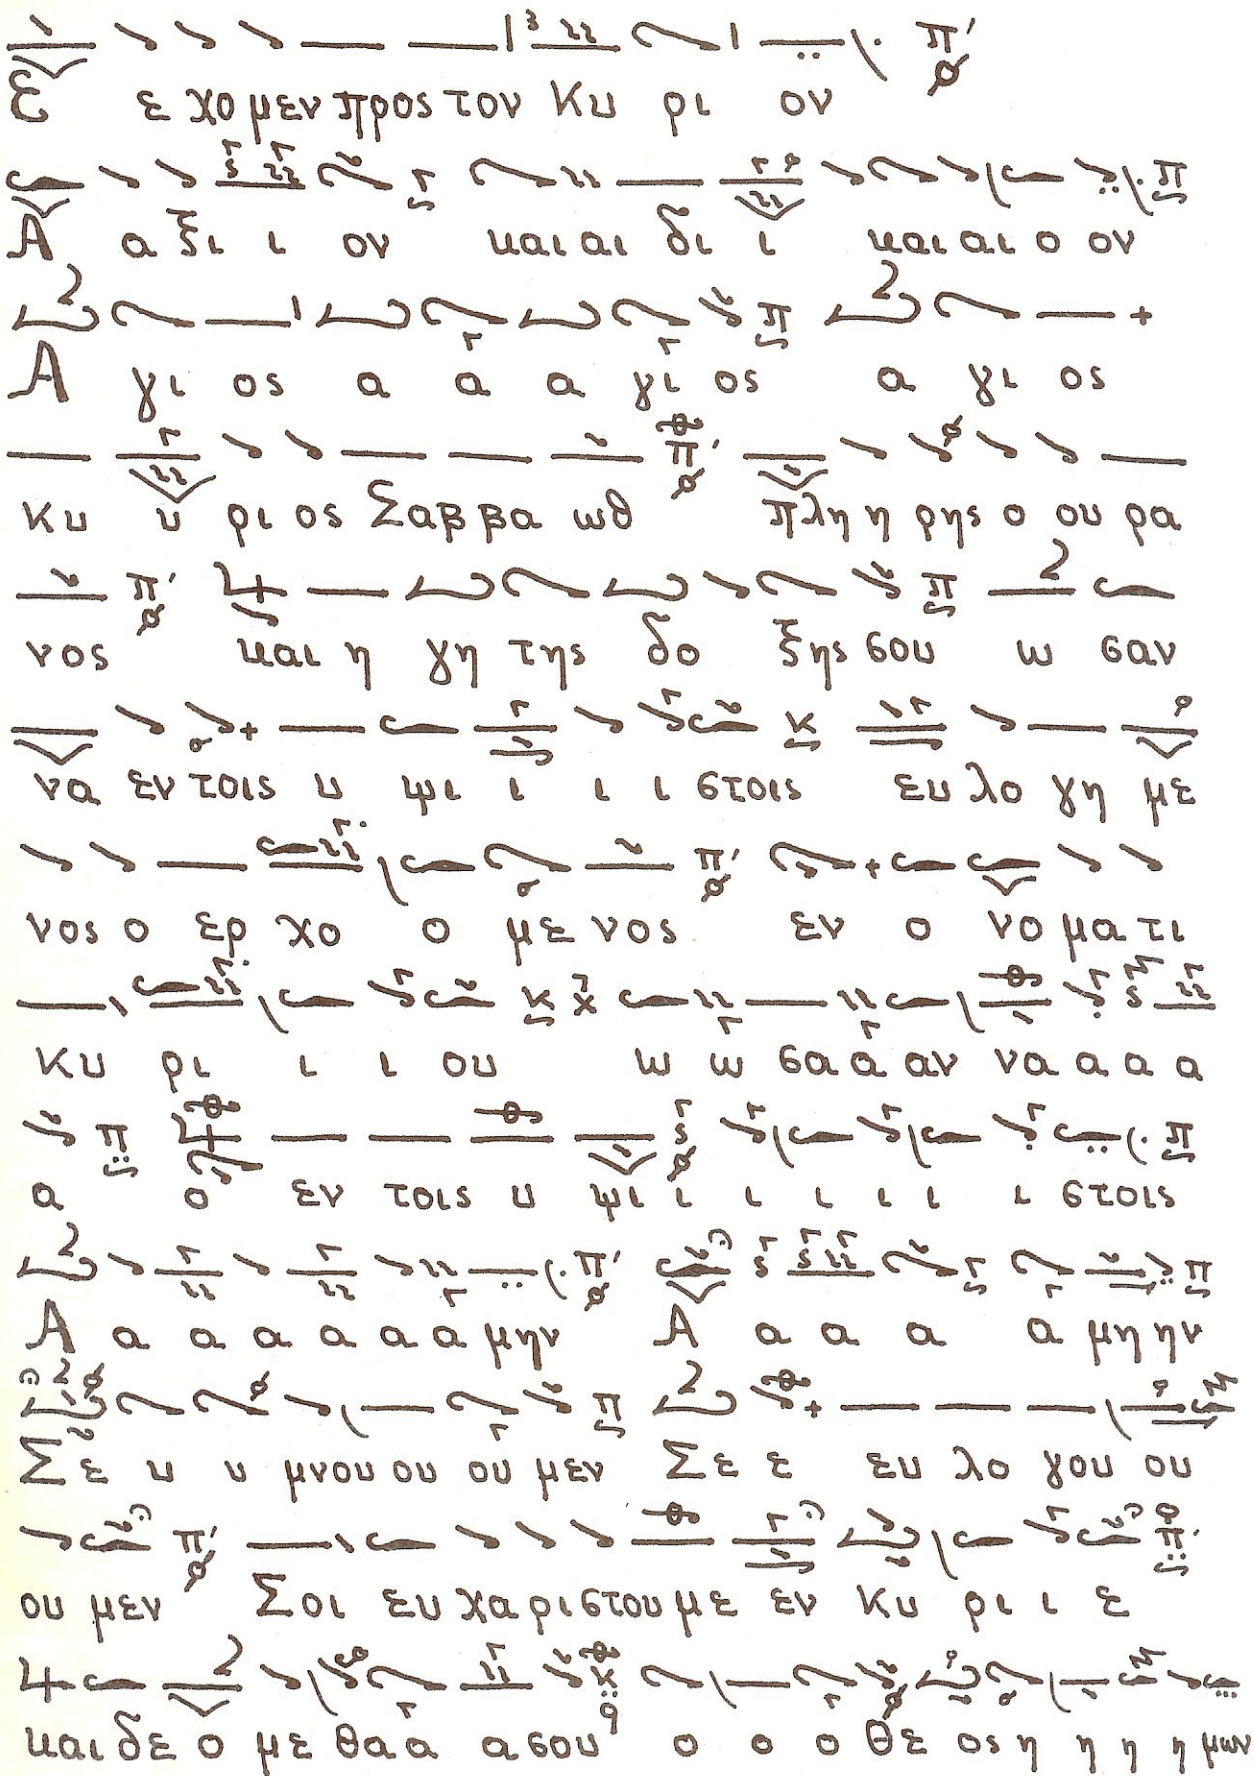 Ε ε χο μεν προς τον Κυ ρι ον
Α α ξι ι ον και αι δι ι και αι ο ον
Α γι ος α α α γι ος α γι ος
κυ υ ρι ος Σαβ βα ωθ πλη η ρης ο ου ρα
νος και η γη της δο ξης σου ω σαν
να εν τοις υ ψι ι ι ι στοις ευ λο γη με
νος ο ερ χο ο με νος εν ο νο μα τι
κυ ρι ι ι ου ω ω σα α αν να α α α
α ο εν τοις υ ψι ι ι ι ι ι στοις
Α α α α α α α μην Α α α α α μη ην
Σε υ υ μνου ου ου μεν Σε ε ευ λο γου ου
ου μεν Σοι ευ χα ρι στου με εν Κυ ρι ι ε
και δε ο με θα α α σου ο ο ο Θε ος η η η η μων